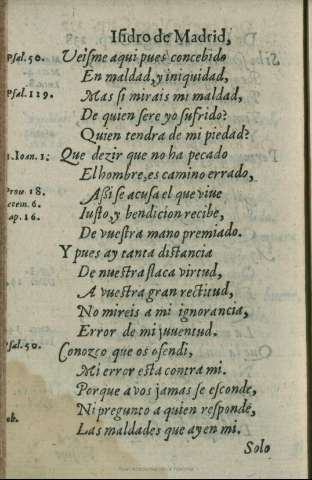 Isidro de Madrid,
Psal. 50. Veisme aqui pues concebido
En maldad, y iniquidad,
Psal. 119. Mas si mirais mi maldad,
De quien sere yo sufrido?
Quien tendra de mi piedad?
1. Ioan. 1. Que dezir que no ha pecado
El hombre, es camino errado,
Prou. 18. Assi se acusa el que viue
erem. 6. Iusto, y bendicion recibe,
ap. 16. De vuestra mano premiado.
Y pues ay tanta distancia
De nuestra flaca virtud,
A vuestra gran rectitud,
No mireis a mi ignorancia,
Error de mi juuentud.
Psal. 50. Conozco que os ofendi,
Mi error esta contra mi.
Porque a vos jamas se esconde,
Ni pregunto a quien respondẽ,
ob. Las maldades que ay en mi.
Solo